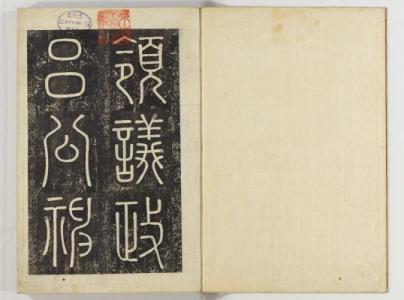 領議政
呂公神